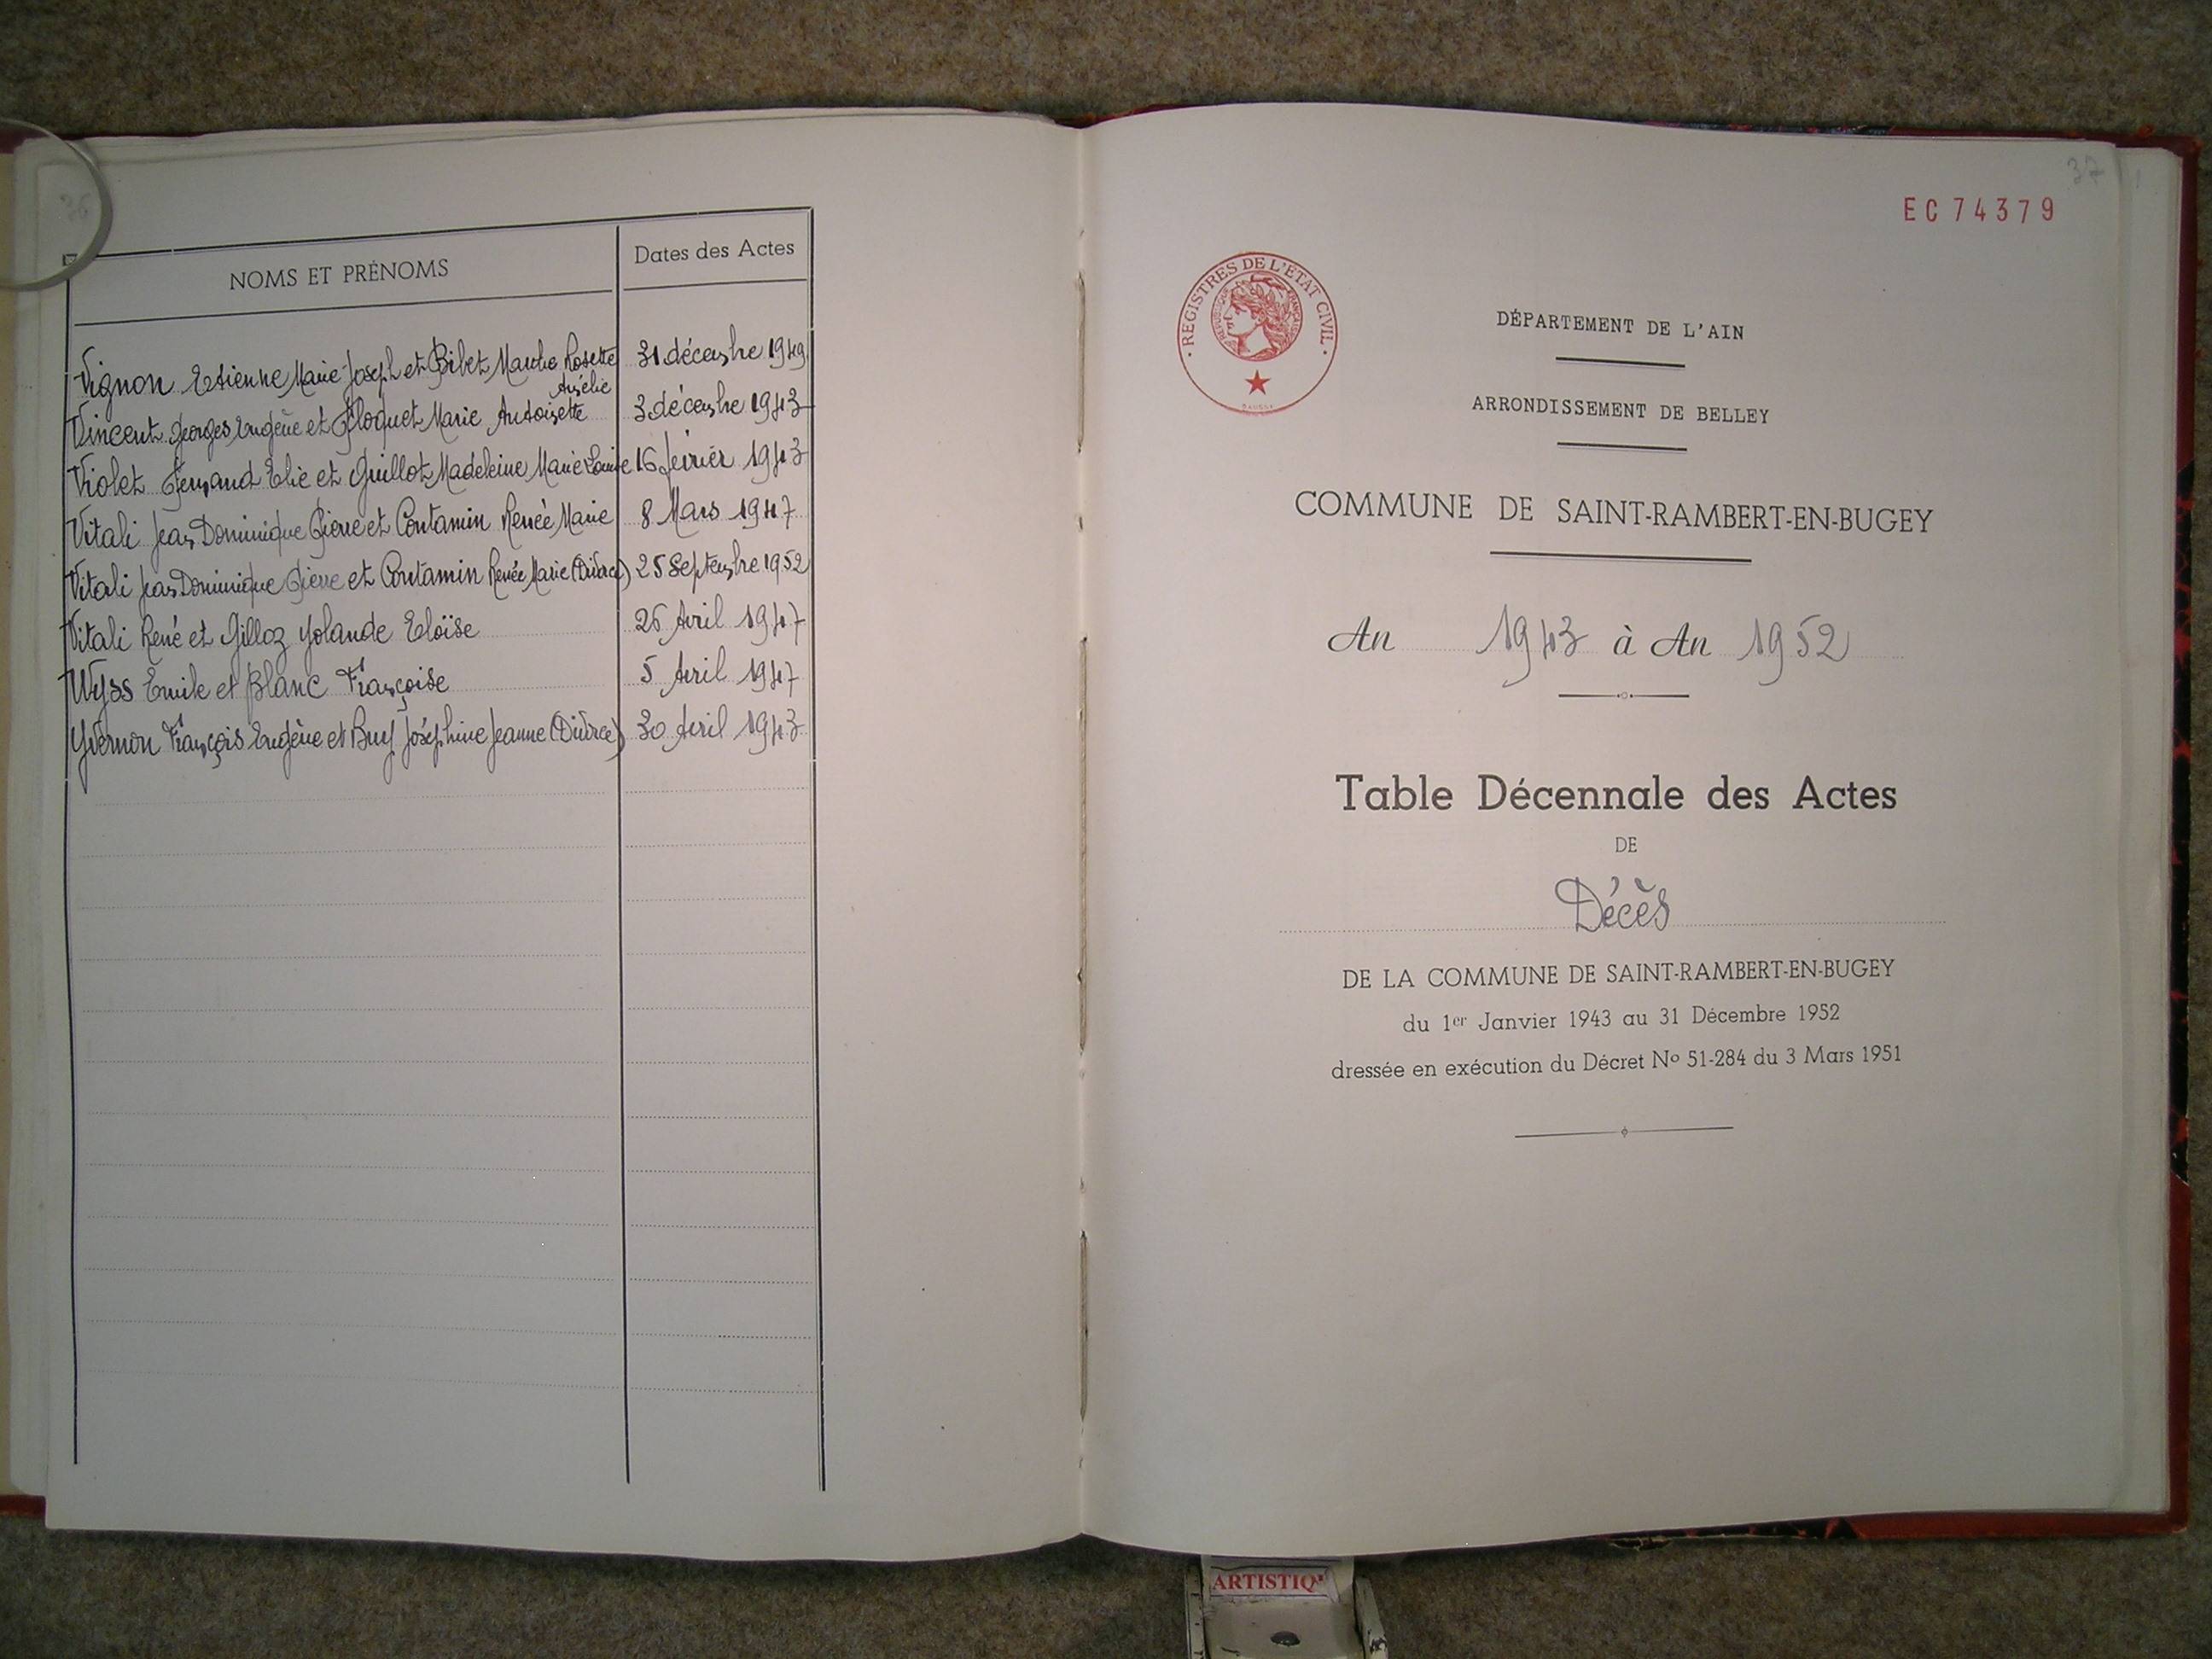 36
NOMS ET PRÉNOMS
Dates des Actes
Vignon Etienne Marie Joseph et Bibet Marthe Rosette 31 décembre 1949
Amélie
Vincent Georges Eugène et Floquet Marie Antoinette 3 décembre 1943
Violet Fernand Elie et Guillot Madeleine Marie Louise 16 février 1943
Vitali Jean Dominique Pierre et Contamin Renée Marie 8 Mars 1947
Vitali Jean Dominique Pierre et Contamin Renée Marie (Divorce) 25 Septembre 1952
Vitali René et Gilloz Yolande Eloïse 26 Avril 1947
Wyss Emile et Blanc Françoise 5 Avril 1947
Yvernon François Eugène et Buy Joséphine Jeanne (Divorce) 30 Avril 1943
37
EC 74379
REGISTRES DE L'ETAT CIVIL
REPUBLIQUE FRANÇAISE
DÉPARTEMENT DE L'AIN
ARRONDISSEMENT DE BELLEY
COMMUNE DE SAINT-RAMBERT-EN-BUGEY
An 1943 à An 1952
Table Décennale des Actes
DE
Décès
DE LA COMMUNE DE SAINT-RAMBERT-EN-BUGEY
du 1er Janvier 1943 au 31 Décembre 1952
dressée en exécution du Décret No 51-284 du 3 Mars 1951
ARTISTIQ